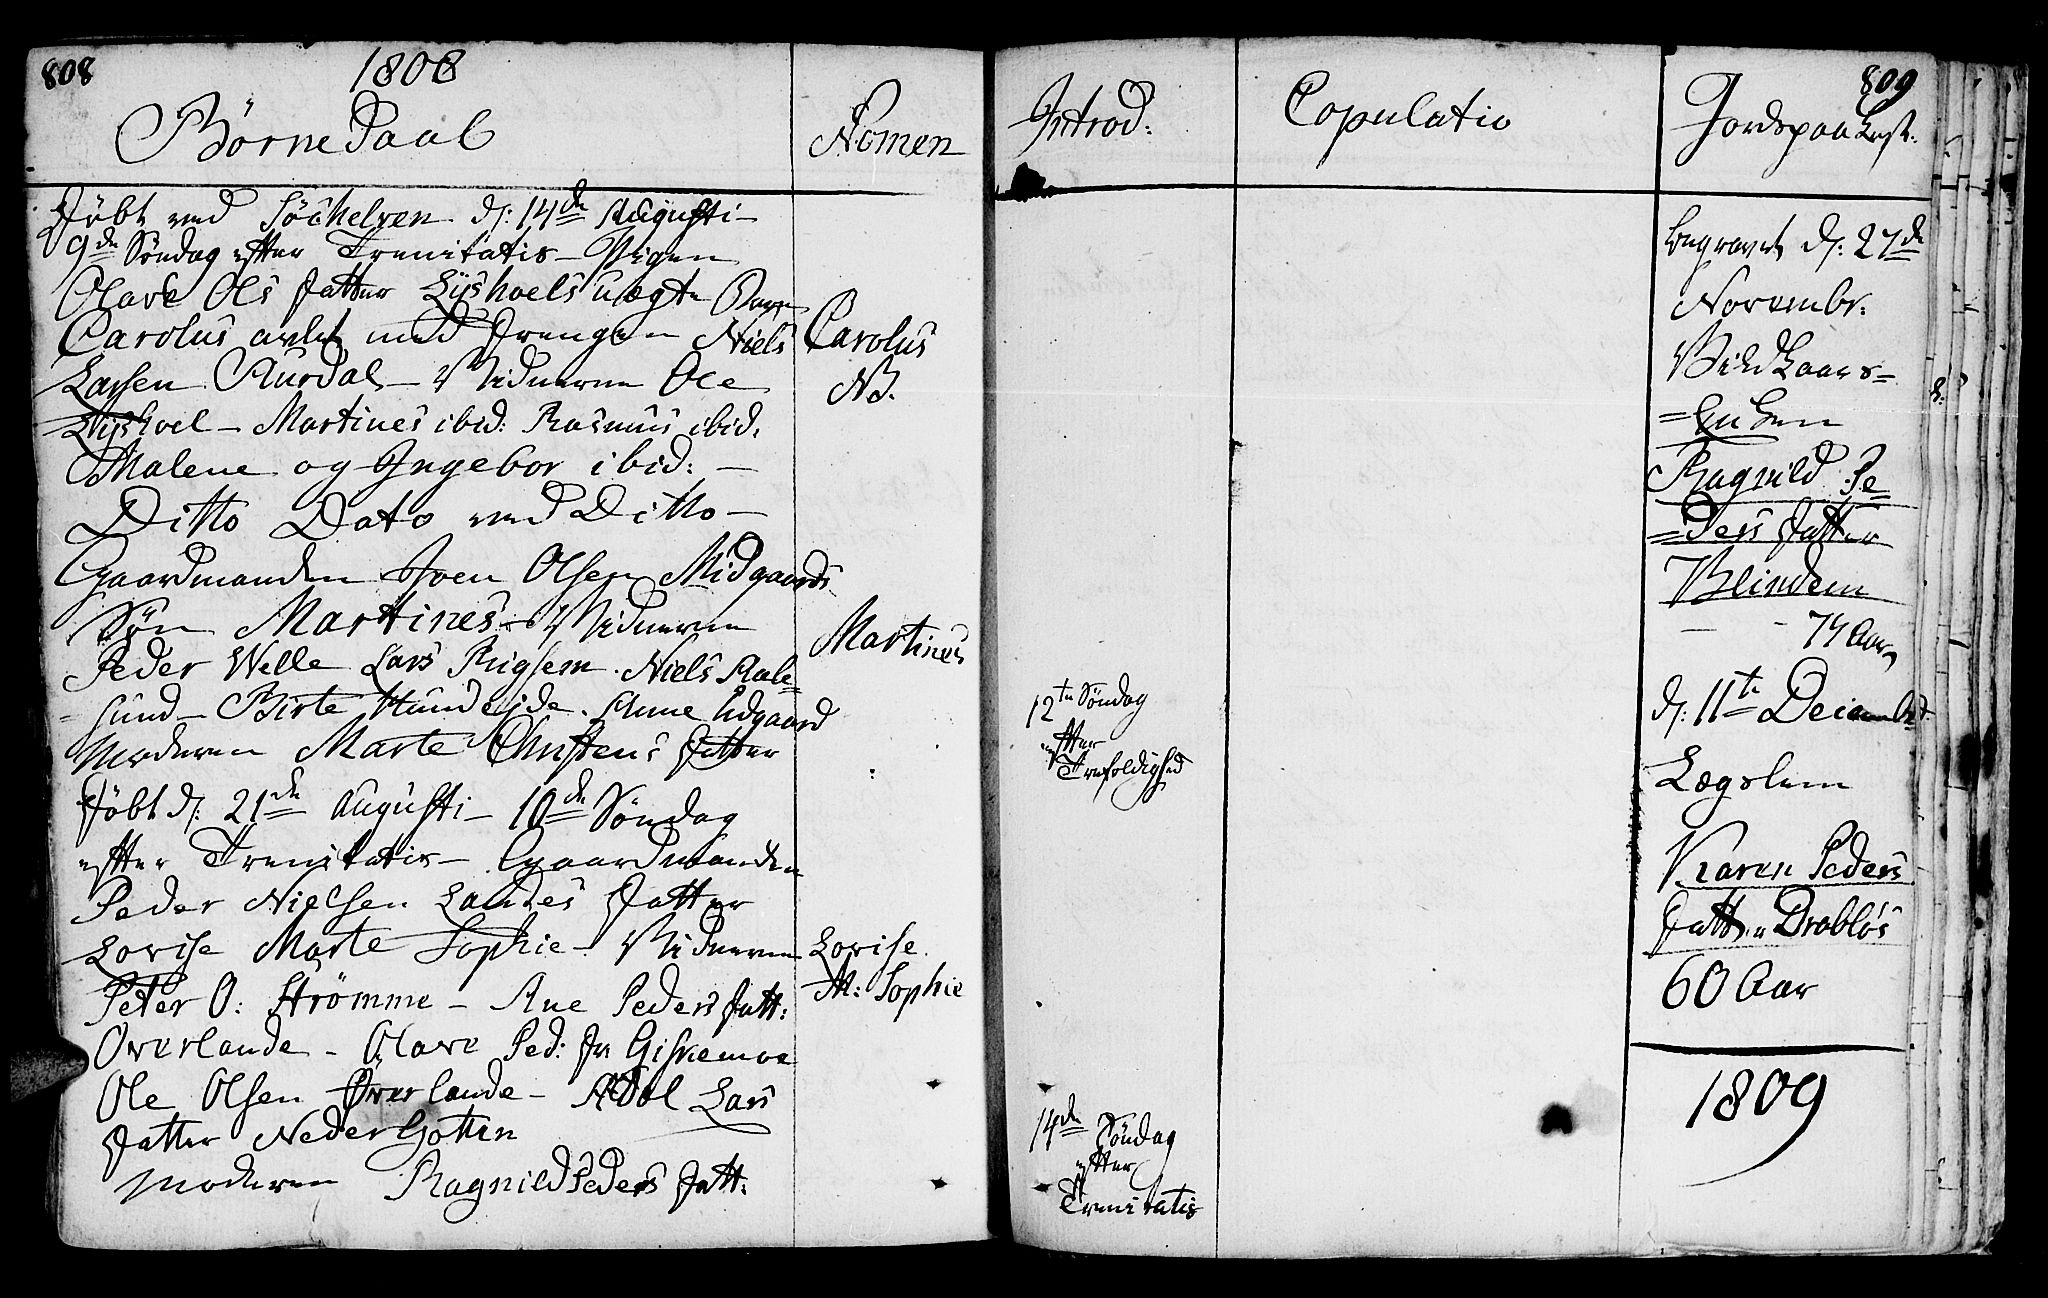 808
1808
Børne Daab
Nomen
Døbt ved Søchelven d: 14de Augusti -
9de Søndag efter Trenitatis - Pigen
Olave Ols Datter Lyshoels uægte Barn
Carolus avlet med Drengen Niels
Larsen Aurdal - Vidnerne Ole
Lyshoel - Martines ibid: Rasmus ibid:
Malene og Ingebor ibid: -
Carolus
NB.
Ditto Dato ved Ditto -
Gaardmanden Iver Olsen Midgaards
Søn Martines - Vidnerne
Peder Welle Lars Rigsem. Niels Aale=
=sund - Birte Hundeide. Anne Udgaard
Moderen Marte Christens Datter
Martines
Døbt d: 21de Augusti - 10de Søndag
efter Trenitatis - Gaardmanden
Peder Nielsen Landes Datter
Lovise Marte Sophie - Vidnerne
Peter O: Strømme - Ane Peders Datt:
Overlande - Olave Ped: Dr Giskemoe
Ole Olsen Øverlande - Abol Lars
Datter Neder Gotten
Moderen Ragnild Peders Datt:
Lovise
M: Sophie
809
Introd:
Copulatio
Jordspaa Kast:
12te Søndag
efter
Trefoldighed
14de Søndag
efter
Trenitatis
begravet d: 27de
Novembr:
Vild Laars=
Ragnild Pe=
=ders Datter
Blindem
74 Aar
d: 11te Decembr
Lægslem
Karen Peders
Datter Drabløs
60 Aar
1809